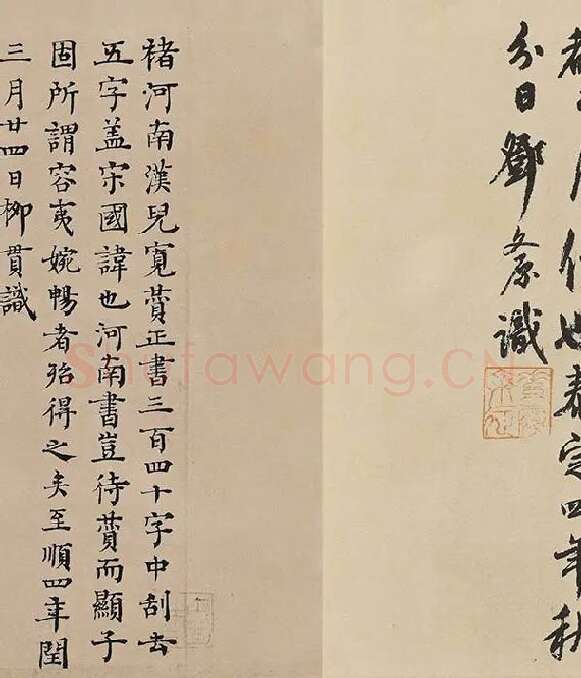 也泰定四年秋
分日鄧文原識
褚河南漢兒寬贊正書三百四十字中刮去
五字盖宋國諱也河南書豈待贊而顯子
固所謂容夷婉暢者殆得之矣至順四年閏
三月廿四日柳貫識
Shufawang.CN